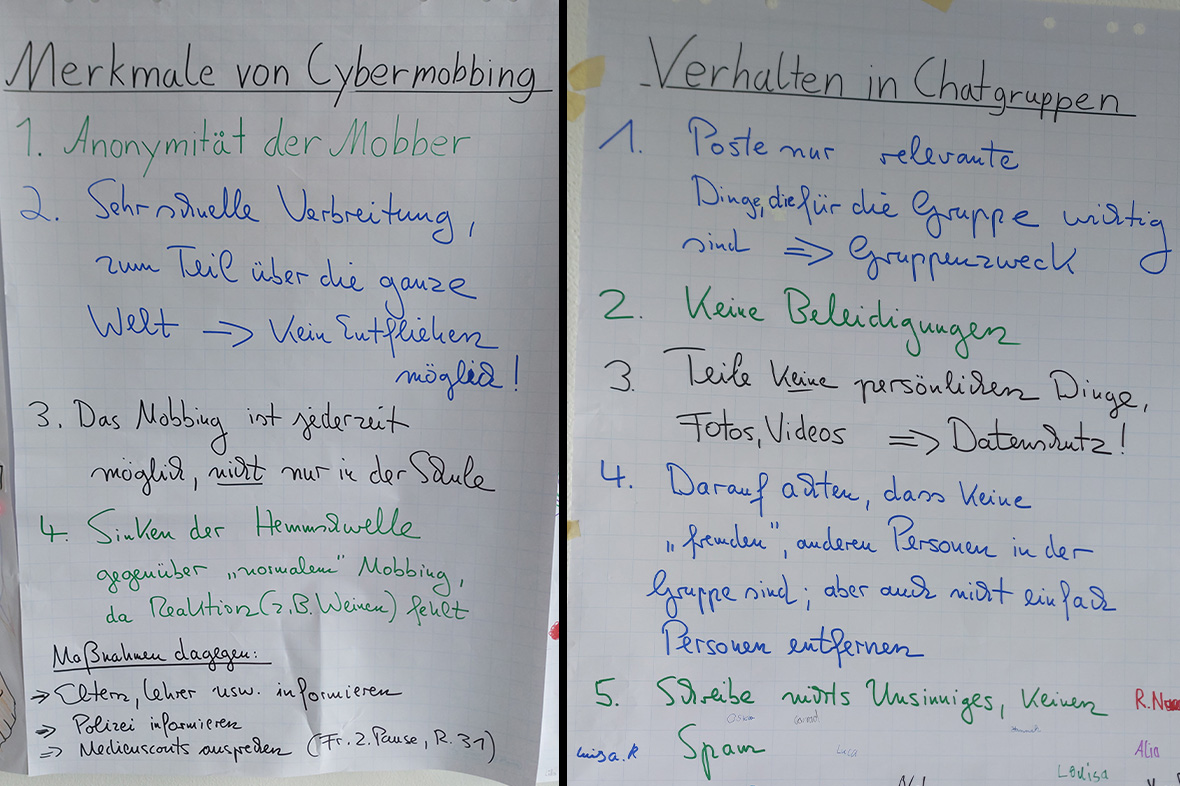 Merkmale von Cybermobbing
1. Anonymität der Mobber
2. Sehr schnelle Verbreitung,
zum Teil über die ganze
Welt => Kein Entfliehen
möglich!
3. Das Mobbing ist jederzeit
möglich, nicht nur in der Schule
4. Sinken der Hemmschwelle
gegenüber „normalem" Mobbing,
da Reaktion (z.B. Weinen) fehlt
Maßnahmen dagegen:
=> Eltern, Lehrer usw. informieren
=> Polizei informieren
=> Medienscouts ansprechen (Fr. 2. Pause, R. 31)
Verhalten in Chatgruppen
1. Poste nur relevante
Dinge, die für die Gruppe wichtig
sind => Gruppenzweck
2. Keine Beleidigungen
3. Teile keine persönlichen Dinge,
Fotos, Videos => Datenschutz!
4. Darauf achten, dass keine
„fremden", anderen Personen in der
Gruppe sind; aber auch nicht einfach
Personen entfernen
5. Schreibe nichts Unsinniges, keinen
Spam
R.
Luisa. R
Luca
Alia
Louisa